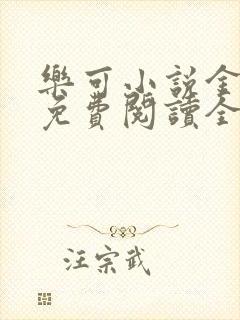 樂可小說全
免費閱讀全
汪宗武